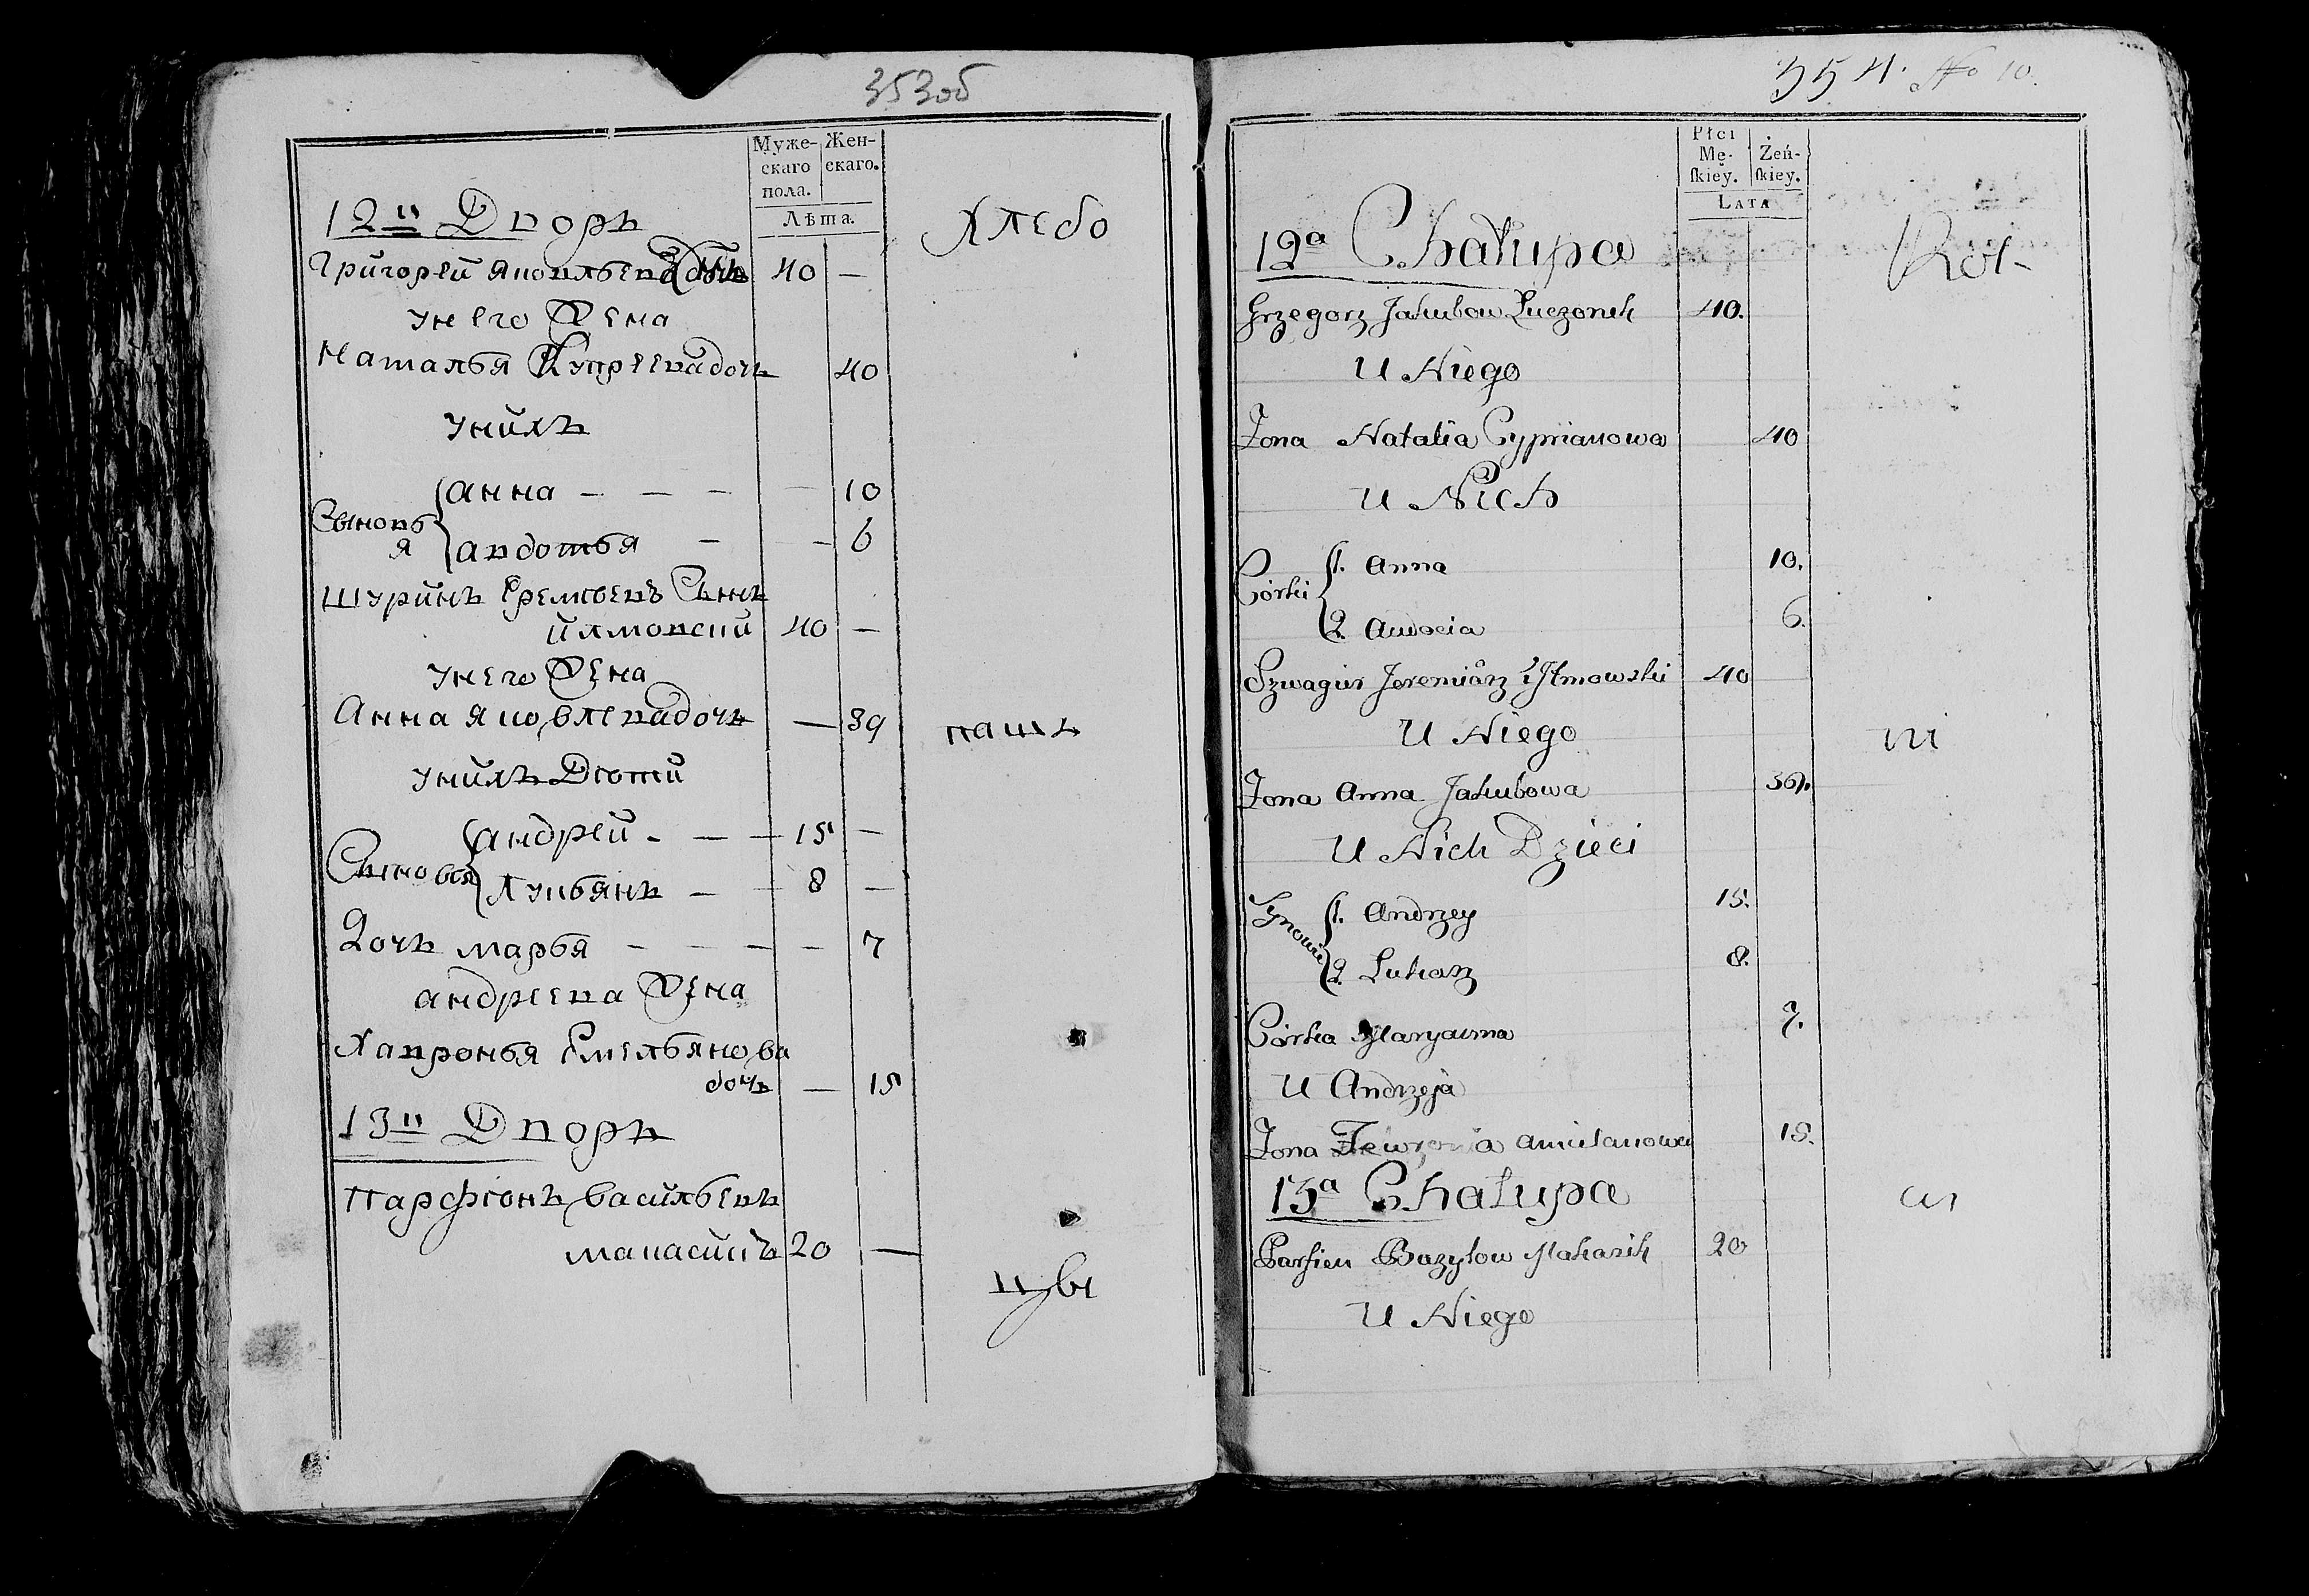 353об
Муже-
скаго
пола.
Жен-
скаго.
Лѣта.
12й Дворъ
Хлебо
Григорей Яковлевъ 40 —
у него Жена
Наталья Купреева дочь 40
у нихъ
Анна — — — — 10
Сыновья
Авдотья — — 6
Шуринъ Еремѣевъ Сынъ
Илмовский 40 —
у него Жена
Анна Яковлева дочь — 39
пашъ
у нихъ Дѣти
Андрей — — 15 —
Сыновья
Лукьянъ — — 8 —
Дочь Марья — — — — 7
Андреева Жена
Хавронья Емельянова
дочь — 15
13й Дворъ
Парфіонъ Васильевъ
Макасикъ 20 —
цы
354. No 10.
Płci
Mę-
skiey.
Żeń-
skiey.
Lata
12a Chałupa
Rol-
Grzegorz Jakubow Łuczonek 40.
U Niego
Zona Natalia Cyprianowa 40
U Nich
Córki
1. Anna 10.
2. Audocia 6.
Szwagier Jeremiasz Iłmowski 40
U Niego
ni
Zona Anna Jakubowa 39.
U Nich Dzieci
Synowie
1. Andrzey 15.
2. Łukasz 8.
Córka Maryanna 7.
U Andrzeja
Zona Fewronia Amielanowa 15.
13a Chałupa
cy
Parfien Bazylow Makasik 20
U Niego